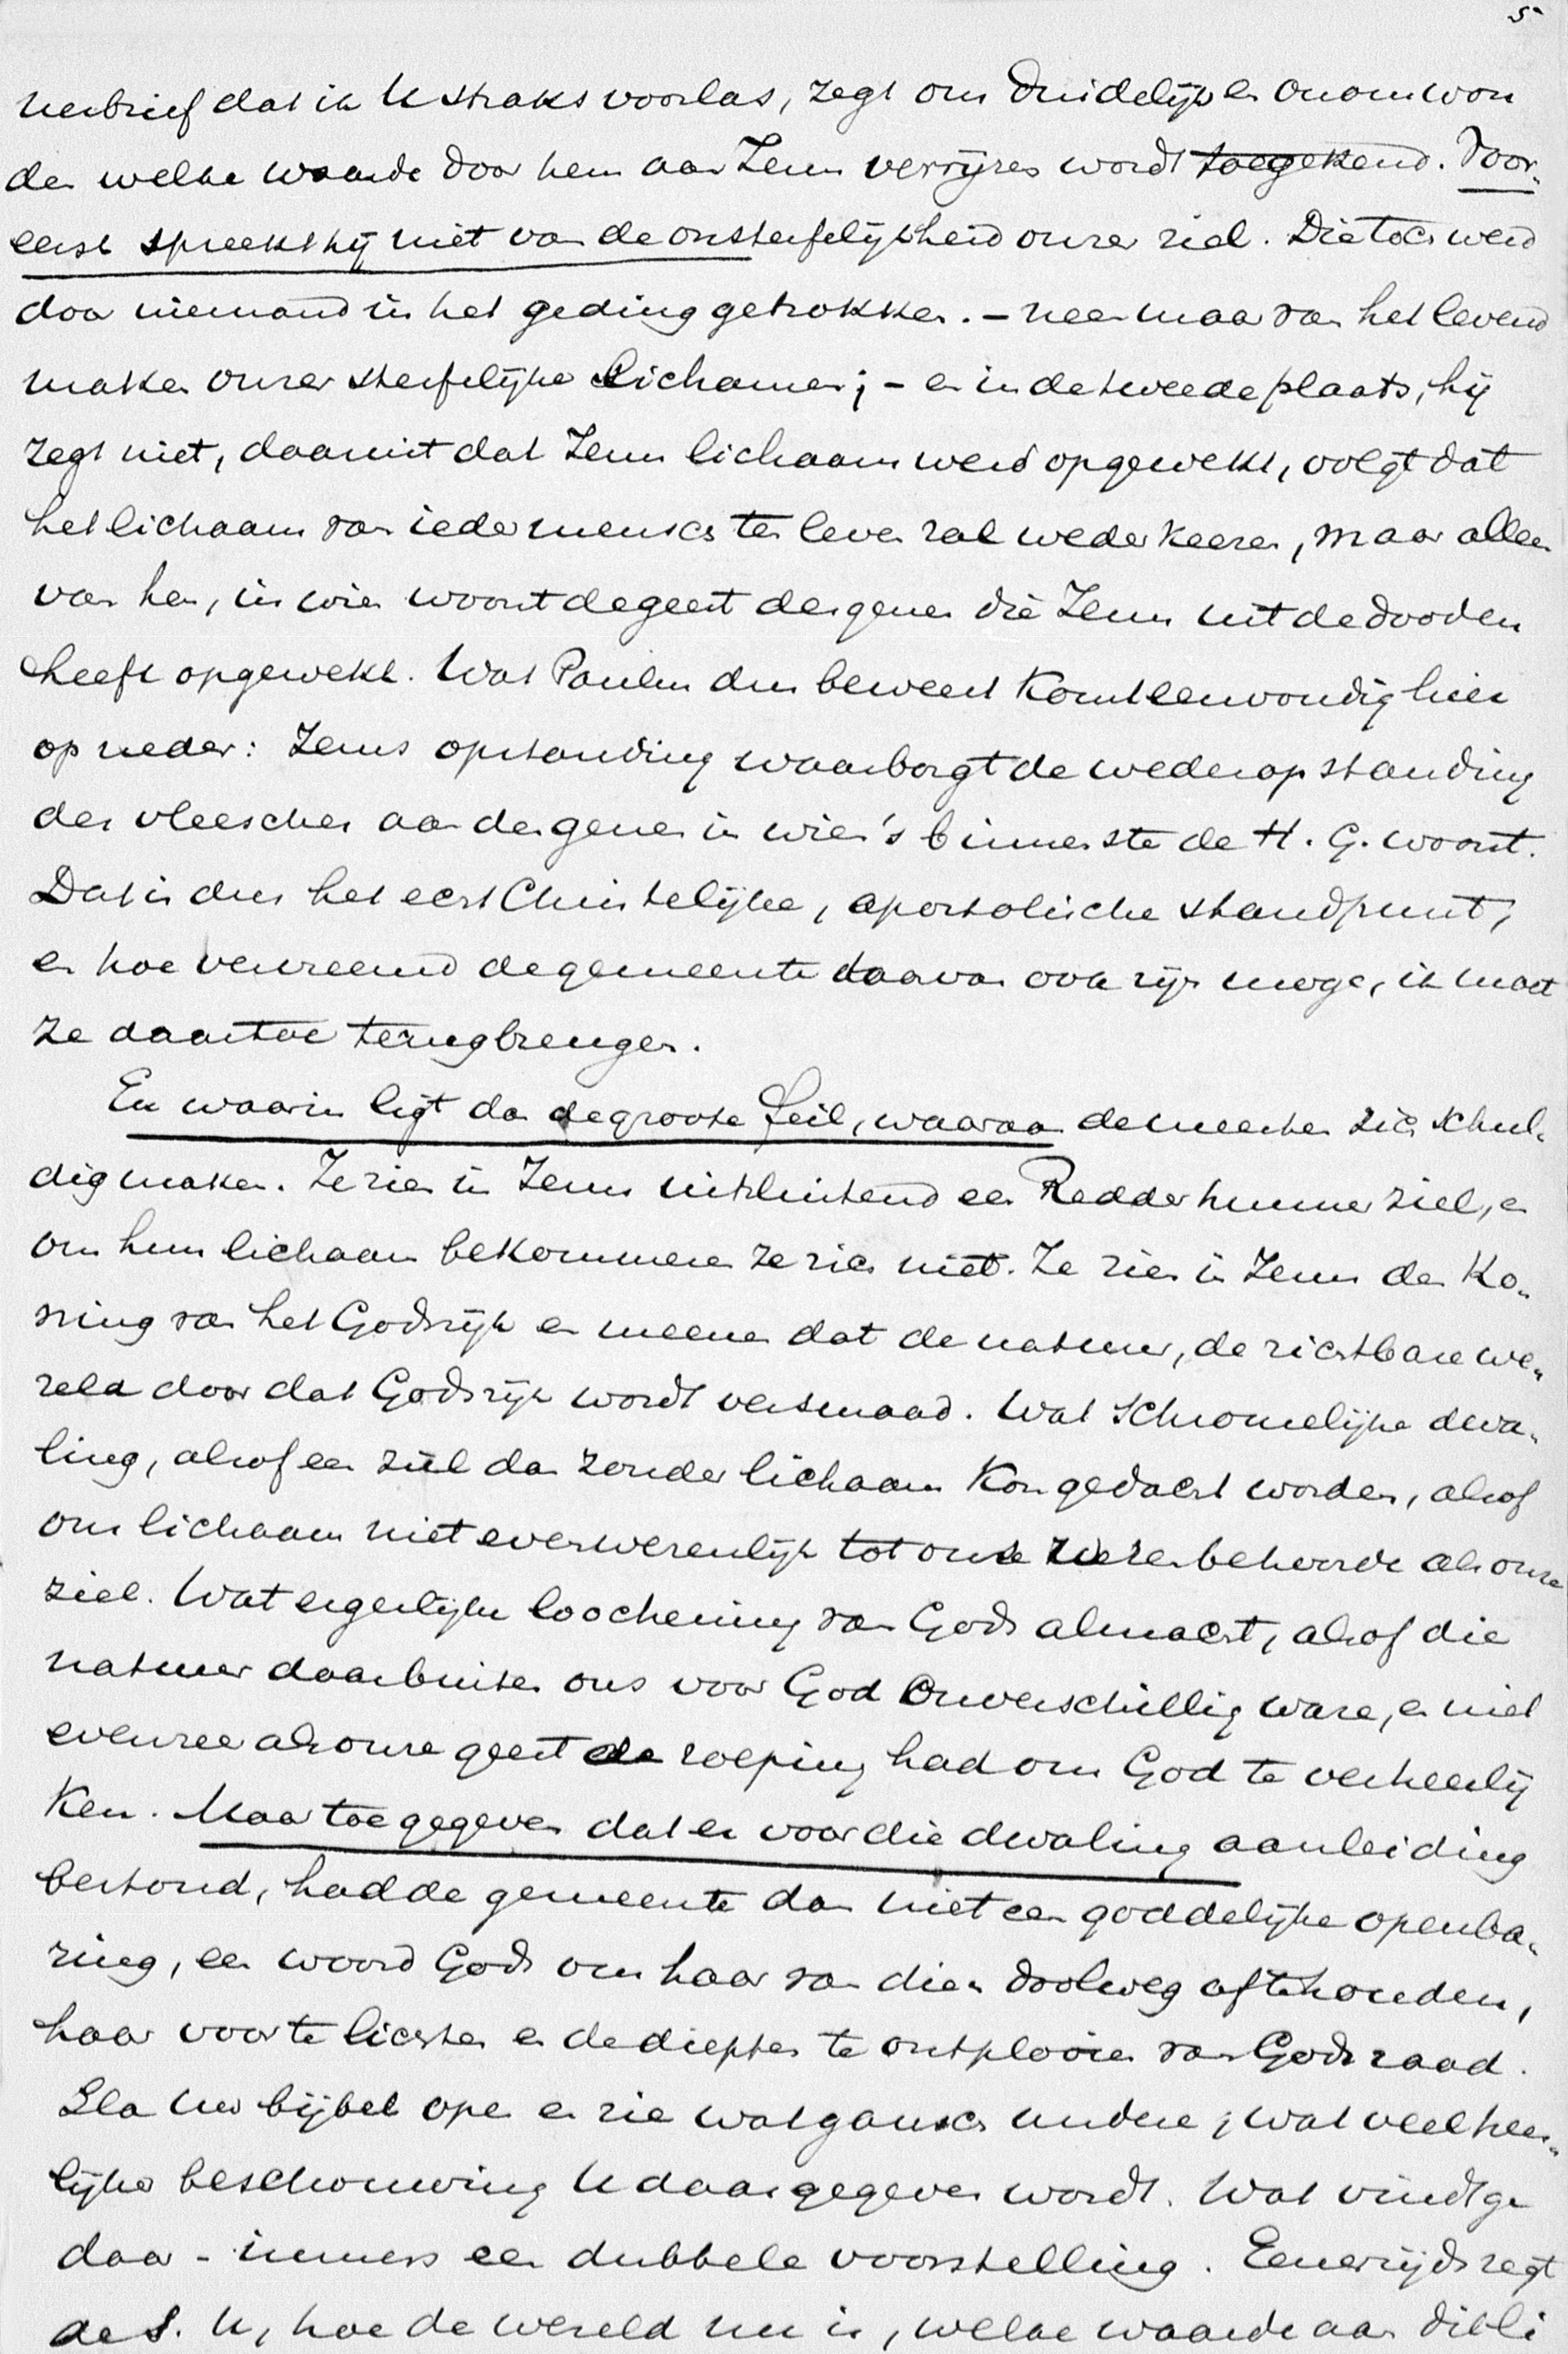 5
nenbrief dat ik U straks voorlas, zegt ons duidelijk en onomwon
den welke waarde door hem aan Jezus verrijzen wordt toegekend. Voor-
eerst spreekt hij niet van de onsterfelijkheid onzer ziel. Die toch werd
door niemand in het geding getrokken. - neen maar van het levend
maken onzer sterfelijke lichamen; - en in de tweede plaats, hij
zegt niet, daaruit dat Jezus lichaam werd opgewekt, volgt dat
het lichaam van ieder mensch ten leven zal wederkeeren, maar alleen
van hen, in wien woont de geest desgenen die Jezus uit de dooden
heeft opgewekt. Wat Paulus dus beweert komt eenvoudig hier
op neder: Jezus opstanding waarborgt de wederopstanding
des vleesches aan dengenen in wien's binnenste de H. G. woont.
Dat is dus het echt Christelijke, apostolische standpunt,
en hoe vervreemd de gemeente daarvan ook zijn moge, ik moet
ze daartoe terugbrengen.
En waarin ligt dan de groote feil, waaraan de meesten zich schul-
dig maken. Ze zien in Jezus uitsluitend een Redder hunner ziel, en
om hun lichaam bekommeren ze zich niet. Ze zien in Jezus den Ko-
ning van het Godsrijk en meenen dat de natuur, de zichtbare we-
reld door dat Godsrijk wordt versmaad. Wat schromelijke dwa-
ling, alsof een ziel dan zonder lichaam kon gedacht worden, alsof
ons lichaam niet even wezenlijk tot ons wezen behoorde als onze
ziel. Wat ergerlijke loochening van Gods almacht, alsof die
natuur daarbuiten ons voor God onverschillig ware, en niet
evenzeer als onze geest de roeping had om God te verheerlij
ken. Maar toegegeven dat er voor die dwaling aanleiding
bestond, had de gemeente dan niet een goddelijke openba-
ring, een woord Gods om haar van dien doolweg af te houden,
haar voor te lichten en de diepten te ontplooien van Gods raad.
Sla Uw bijbel open en zie wat gansch andere, wat veel heer-
lijker beschouwing U daar gegeven wordt. Wat vindt ge
daar - immers een dubbele voorstelling. Eenerzijds zegt
de S. U, hoe de wereld nu is, welke waarde aan die li